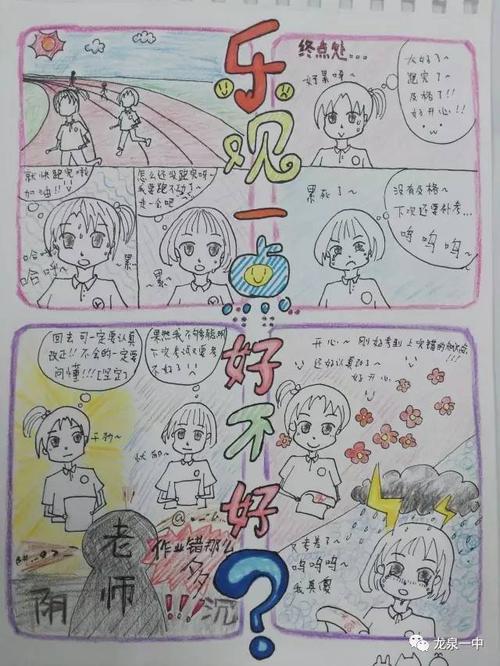 乐观一点
好不好?
终点处...
好累啊~
太好了~
跑完了~
及格了!!
好开心!!
就快跑完啦
加油!!
哈
哈
累
怎么还没跑完呀~
我要跑不动了~
走一会吧
累
累死了~
没有及格~
下次还要补考...
呜呜呜~
回去可一定要认真
改正!!不会的一定要
问懂!!!【坚定】
果然我不够聪明
下次考试又要考
不好了!!
老师
阴
沉
作业错那么
多!!!
开心~
刚好考到上次错的
还好认真改了~
好开心~
又考差了~
呜呜呜
我真傻
龙泉一中